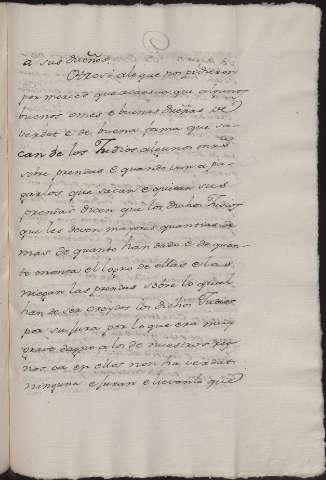 a sus dueños.
Otrosi alo que nos pidieron
por merced que acaesia que algunos
buenos omes e buenas dueñas de
verdat e de buena fama que sa-
can de los Judios algunos mrs
sobre prendas e quando van a pa-
garlos que sacan e quitar sus
prendas dicen que los dichos Judios
que les deven mayores quantias de
mas de quanto han dado e de quan-
to monta el logro de ellas e las
niegan las prendas sobre lo qual
han de ser creydos los dichos Judios
por su jura por lo que era muy
grave dagno a los de nuestros reg-
nos, ca en ellos non ha verdat
ninguna e juran e lievanlo que